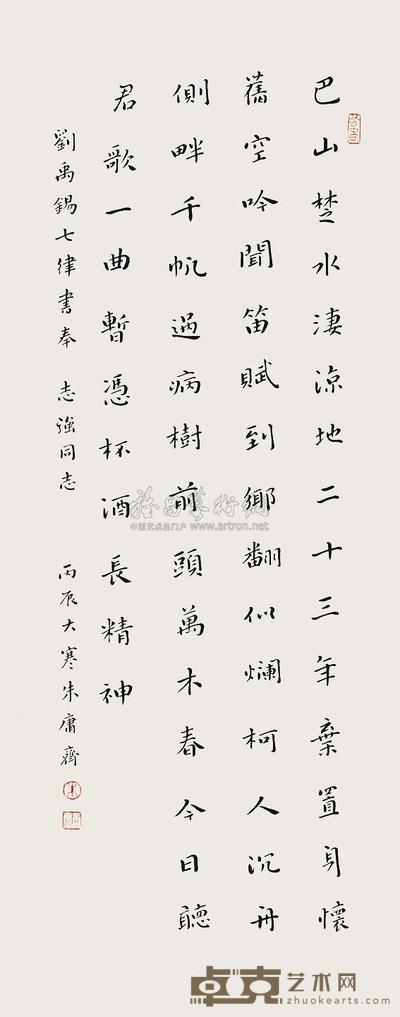 巴山楚水淒涼地二十三年棄置身懷
舊空吟聞笛賦到鄉翻似爛柯人沉舟
側畔千帆過病樹前頭萬木春今日聽
君歌一曲暫憑杯酒長精神
劉禹錫七律書奉 志強同志 丙辰大寒朱庸齋
中国艺术品门户 www.artron.net
卓克艺术网
zhuokearts.com